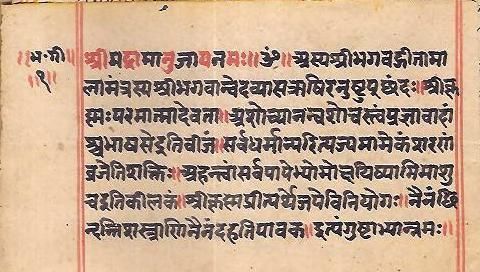 ॥भ॰गी॥ श्रीमद्रामानुजायनमः॥ ॐ॥ अस्यश्रीभगवद्गीतामा
॥१॥ लामंत्रस्य श्रीभगवान्वेदव्यासऋषिरनुष्टुप्छंदः॥ श्रीकृ
ष्णःपरमात्मादेवता॥ अशोच्यानन्वशोचस्त्वंप्रज्ञावादां
श्चभाषसेइतिबीजं॥ सर्वधर्मान्परित्यज्यमामेकंशरणं
व्रजेतिशक्तिः॥ अहंत्वांसर्वपापेभ्योमोक्षयिष्यामिमाशु
चइतिकीलकं॥ श्रीकृष्णप्रीत्यर्थेजपेविनियोगः॥ नैनंछिं
दन्तिशस्त्राणिनैनंदहतिपावकः॥ इत्यंगुष्टाभ्यान्नमः॥